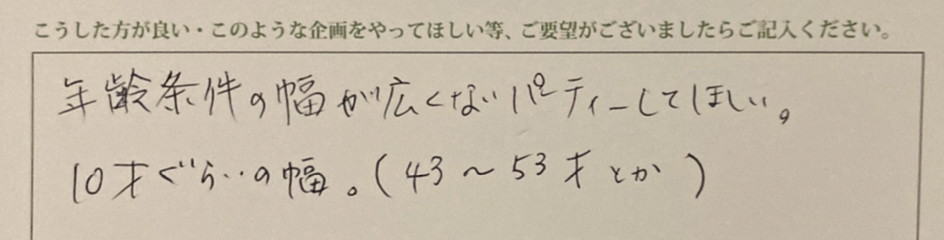 こうした方が良い・このような企画をやってほしい等、ご要望がございましたらご記入ください。
年齢条件の幅が広くないパーティーしてほしい。
10才ぐらいの幅。(43～53才とか)